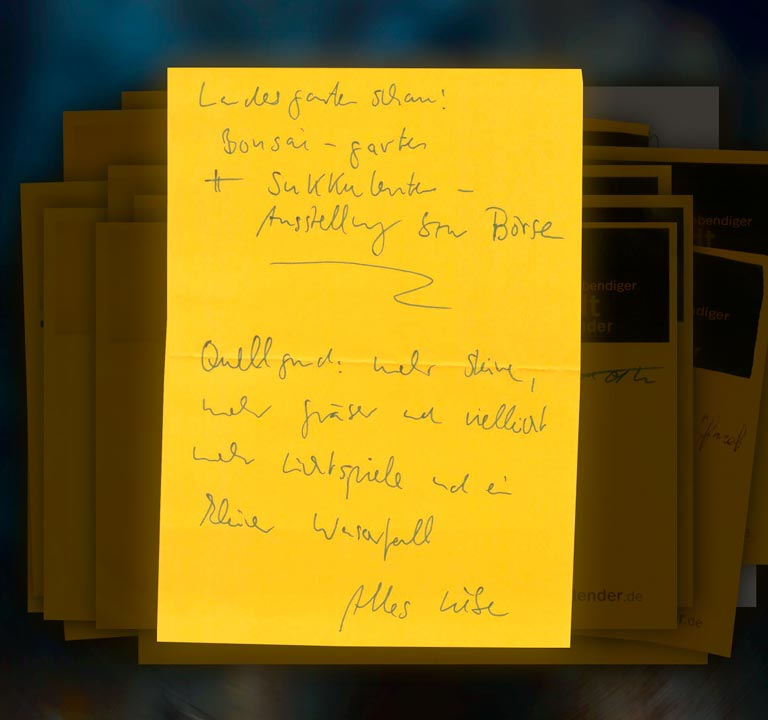 Landesgartenschau!
Bonsai-garten
+ Sukkulenten-
Ausstellung bzw Börse
Quellgrund: mehr Steine,
mehr gräser und vielleicht
mehr Lichtspiele und ein
kleiner Wasserfall
Alles Liebe
ebendiger
it
bendiger
lt
nder
ndiger
lender.de
r.de